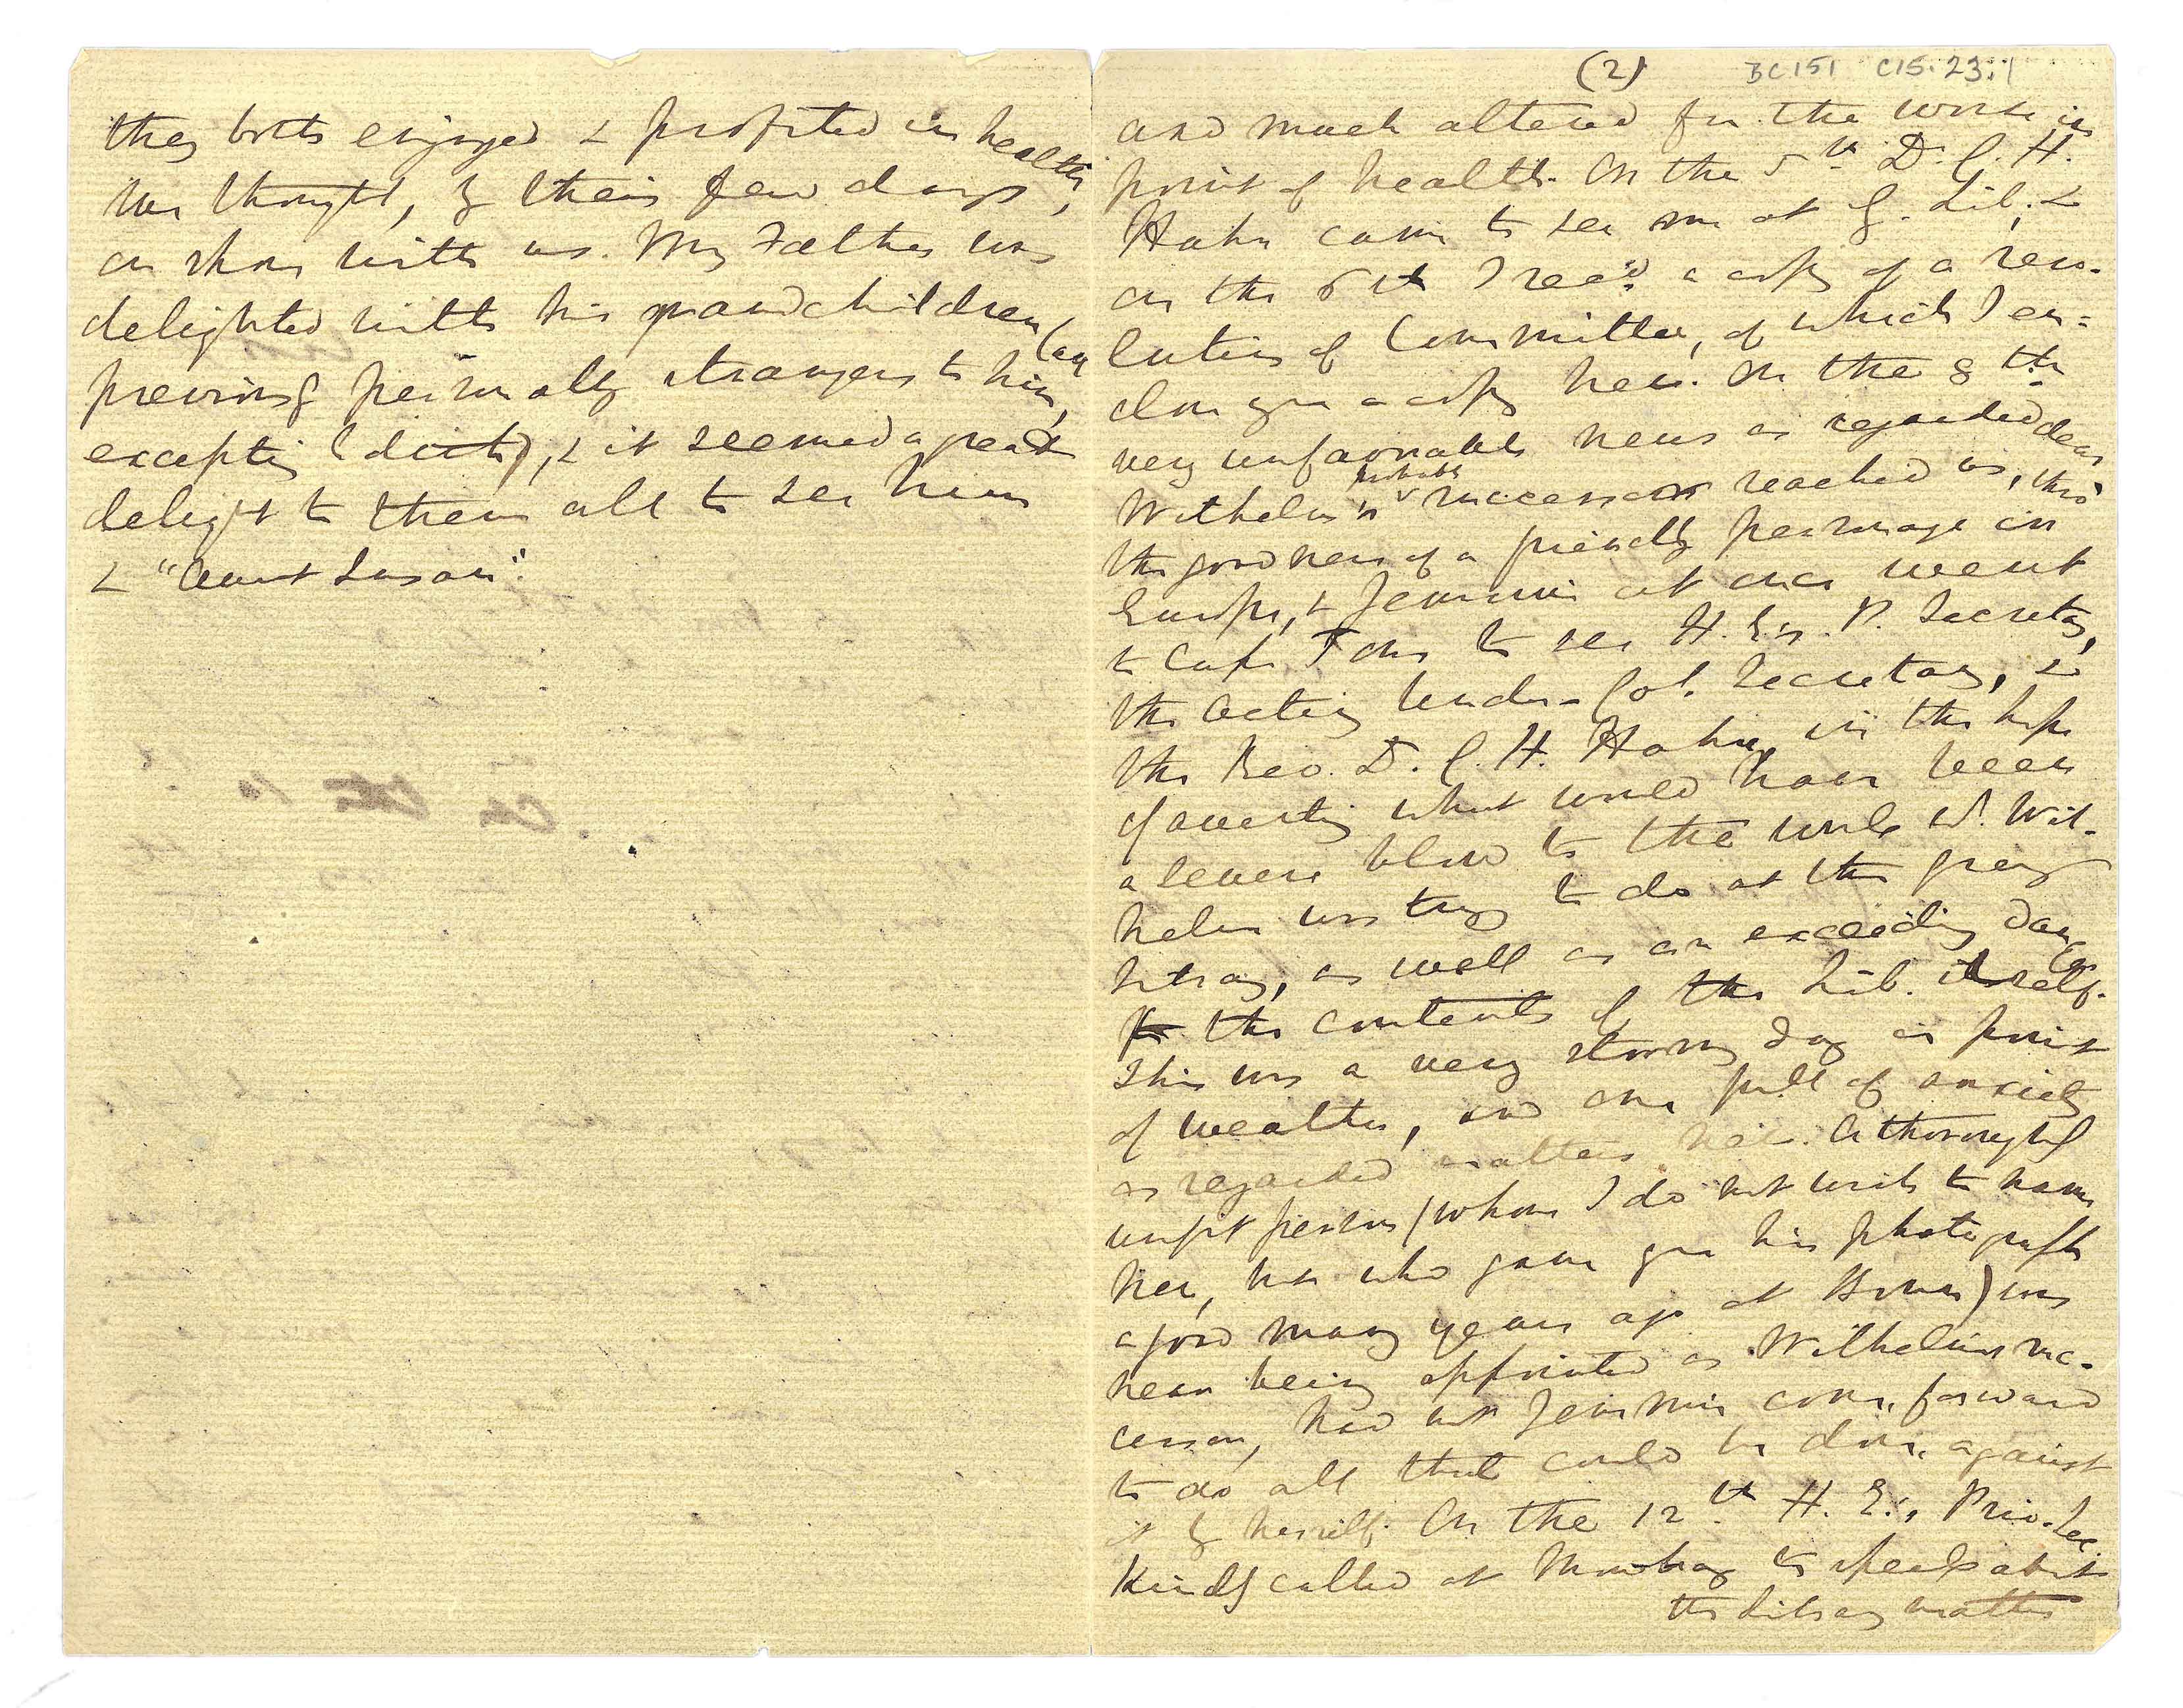 they both enjoyed & profited in health,
we thought, by their few days
on shore with us. My Father was
delighted with his grandchildren (all
previously personally strangers to him,
excepting Edith), & it seemed a great
delight to them all to see him
& "Aunt Susan".
(2)
BC151 C15.23.1
and much altered for the worse in
point of health. On the 5th Dr. C. H.
Hahn came to see me at G. Lib; &
on the 6th I recd. a copy of a reso-
lution of Committee, of which I en=
close you a copy here. On the 8th
very unfavourable news as regarded dear
Wilhelm's probable successor reached us, thro'
the goodness of a friendly personage in
Europe, & Jemima at once went
to Cape Town to see H. E's. P. Secretary,
the Acting Under-Col. Secretary, &
the Rev. D. C. H. Hahn, in the hope
of averting what would have been
a severe blow to the work W. Wil-
helm was trying to do at the Grey
Library, as well as an exceeding danger
to the contents of the Lib. itself.
This was a very stormy day in point
of weather, and one full of anxiety
as regarded matters here. A thoroughly
unfit person (whom I do not wish to name
here, but who gave you his photograph
a good many years ago at Bonn) was
near being appointed as Wilhelm's suc-
cessor, had not Jemima come forward
to do all that could be done against
it by herself. On the 12th H. E.'s Priv. Sec.
kindly called at Mowbray to speak about
the Library matter